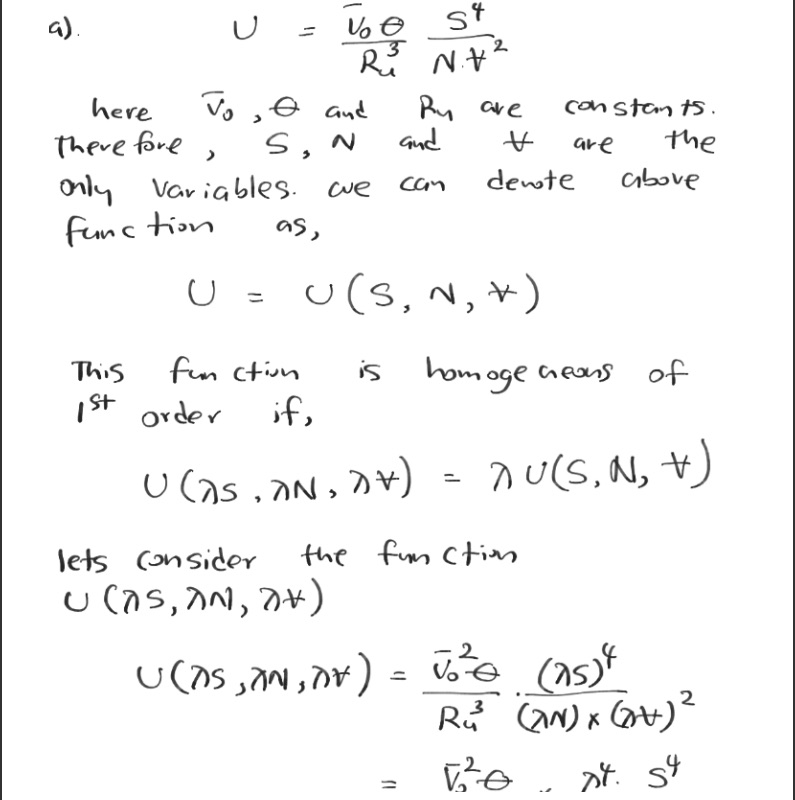 a). U = V̄₀θ/Rᵤ³ S⁴/N.V̶²
here V̄₀, θ and Rᵤ are constants.
Therefore, S, N and V̶ are the
only variables. we can denote above
function as,
U = U(S, N, V̶)
This function is homogeneous of
1st order if,
U(λS, λN, λV̶) = λU(S, N, V̶)
lets consider the function
U(λS, λN, λV̶)
U(λS, λN, λV̶) = V̄₀²θ/Rᵤ³ . (λS)⁴/(λN) × (λV̶)²
= V̄₀²θ λ⁴. S⁴